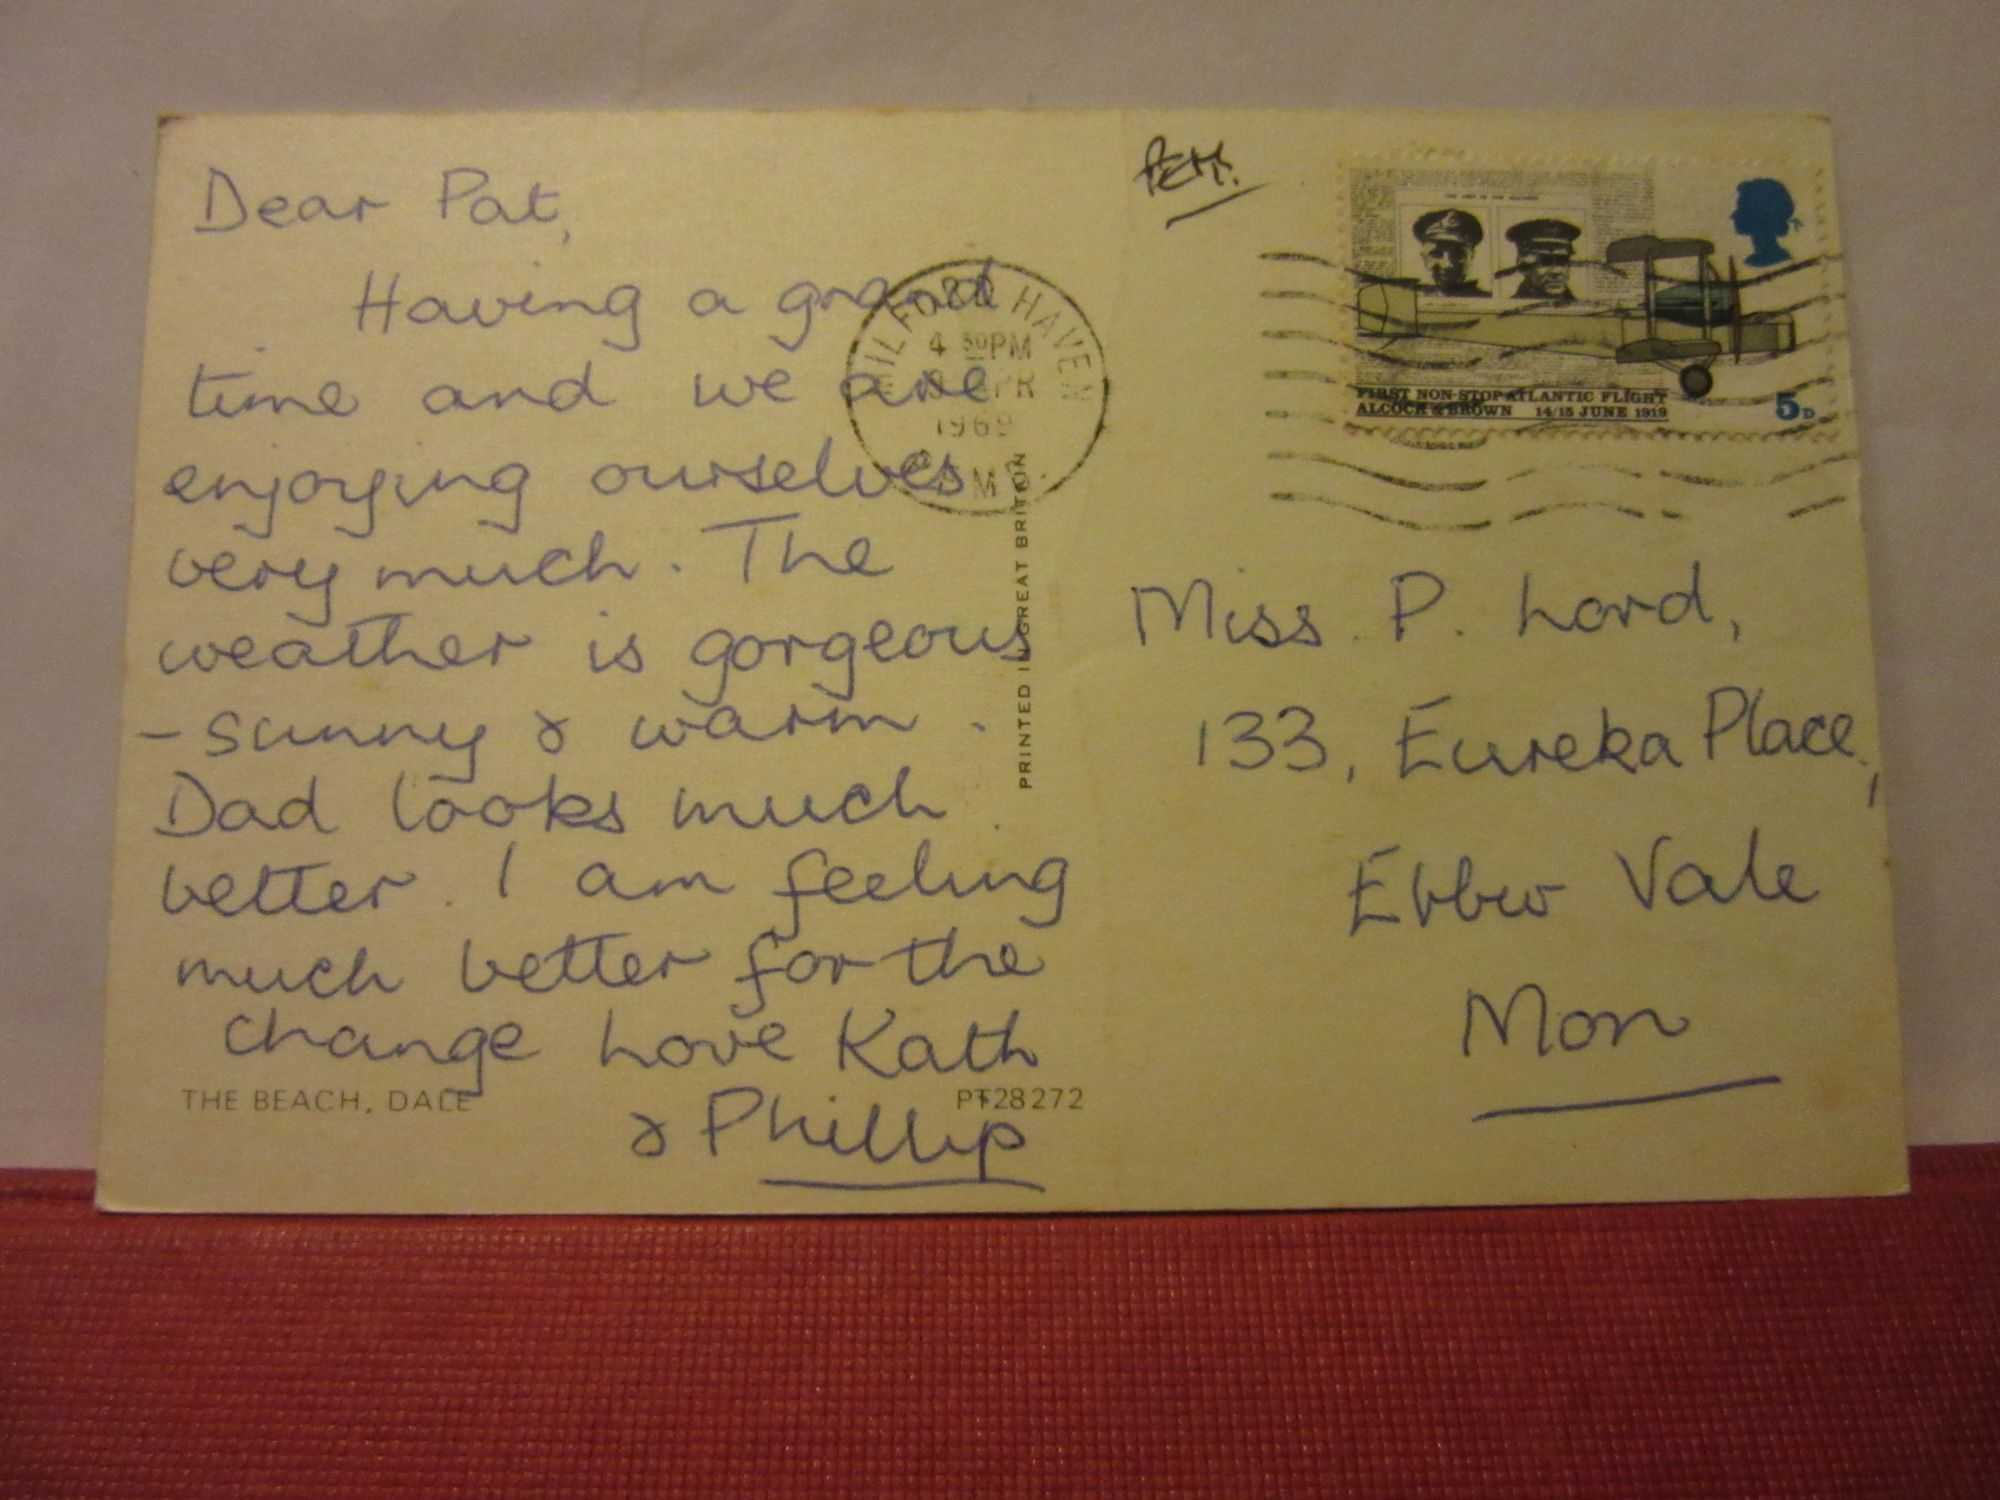 Dear Pat,
Having a grand
time and we are
enjoying ourselves
very much. The
weather is gorgeous
- sunny & warm.
Dad looks much
better. I am feeling
much better for the
change Love Kath
& Phillip
THE BEACH, DALE
PT28272
PRINTED IN GREAT BRITON
MILFORD HAVEN
4 30PM
APR
1969
PEM.
FIRST NON-STOP ATLANTIC FLIGHT
ALCOCK & BROWN 14/15 JUNE 1919
5D
Miss. P. Lord,
133, Eureka Place,
Ebbw Vale
Mon